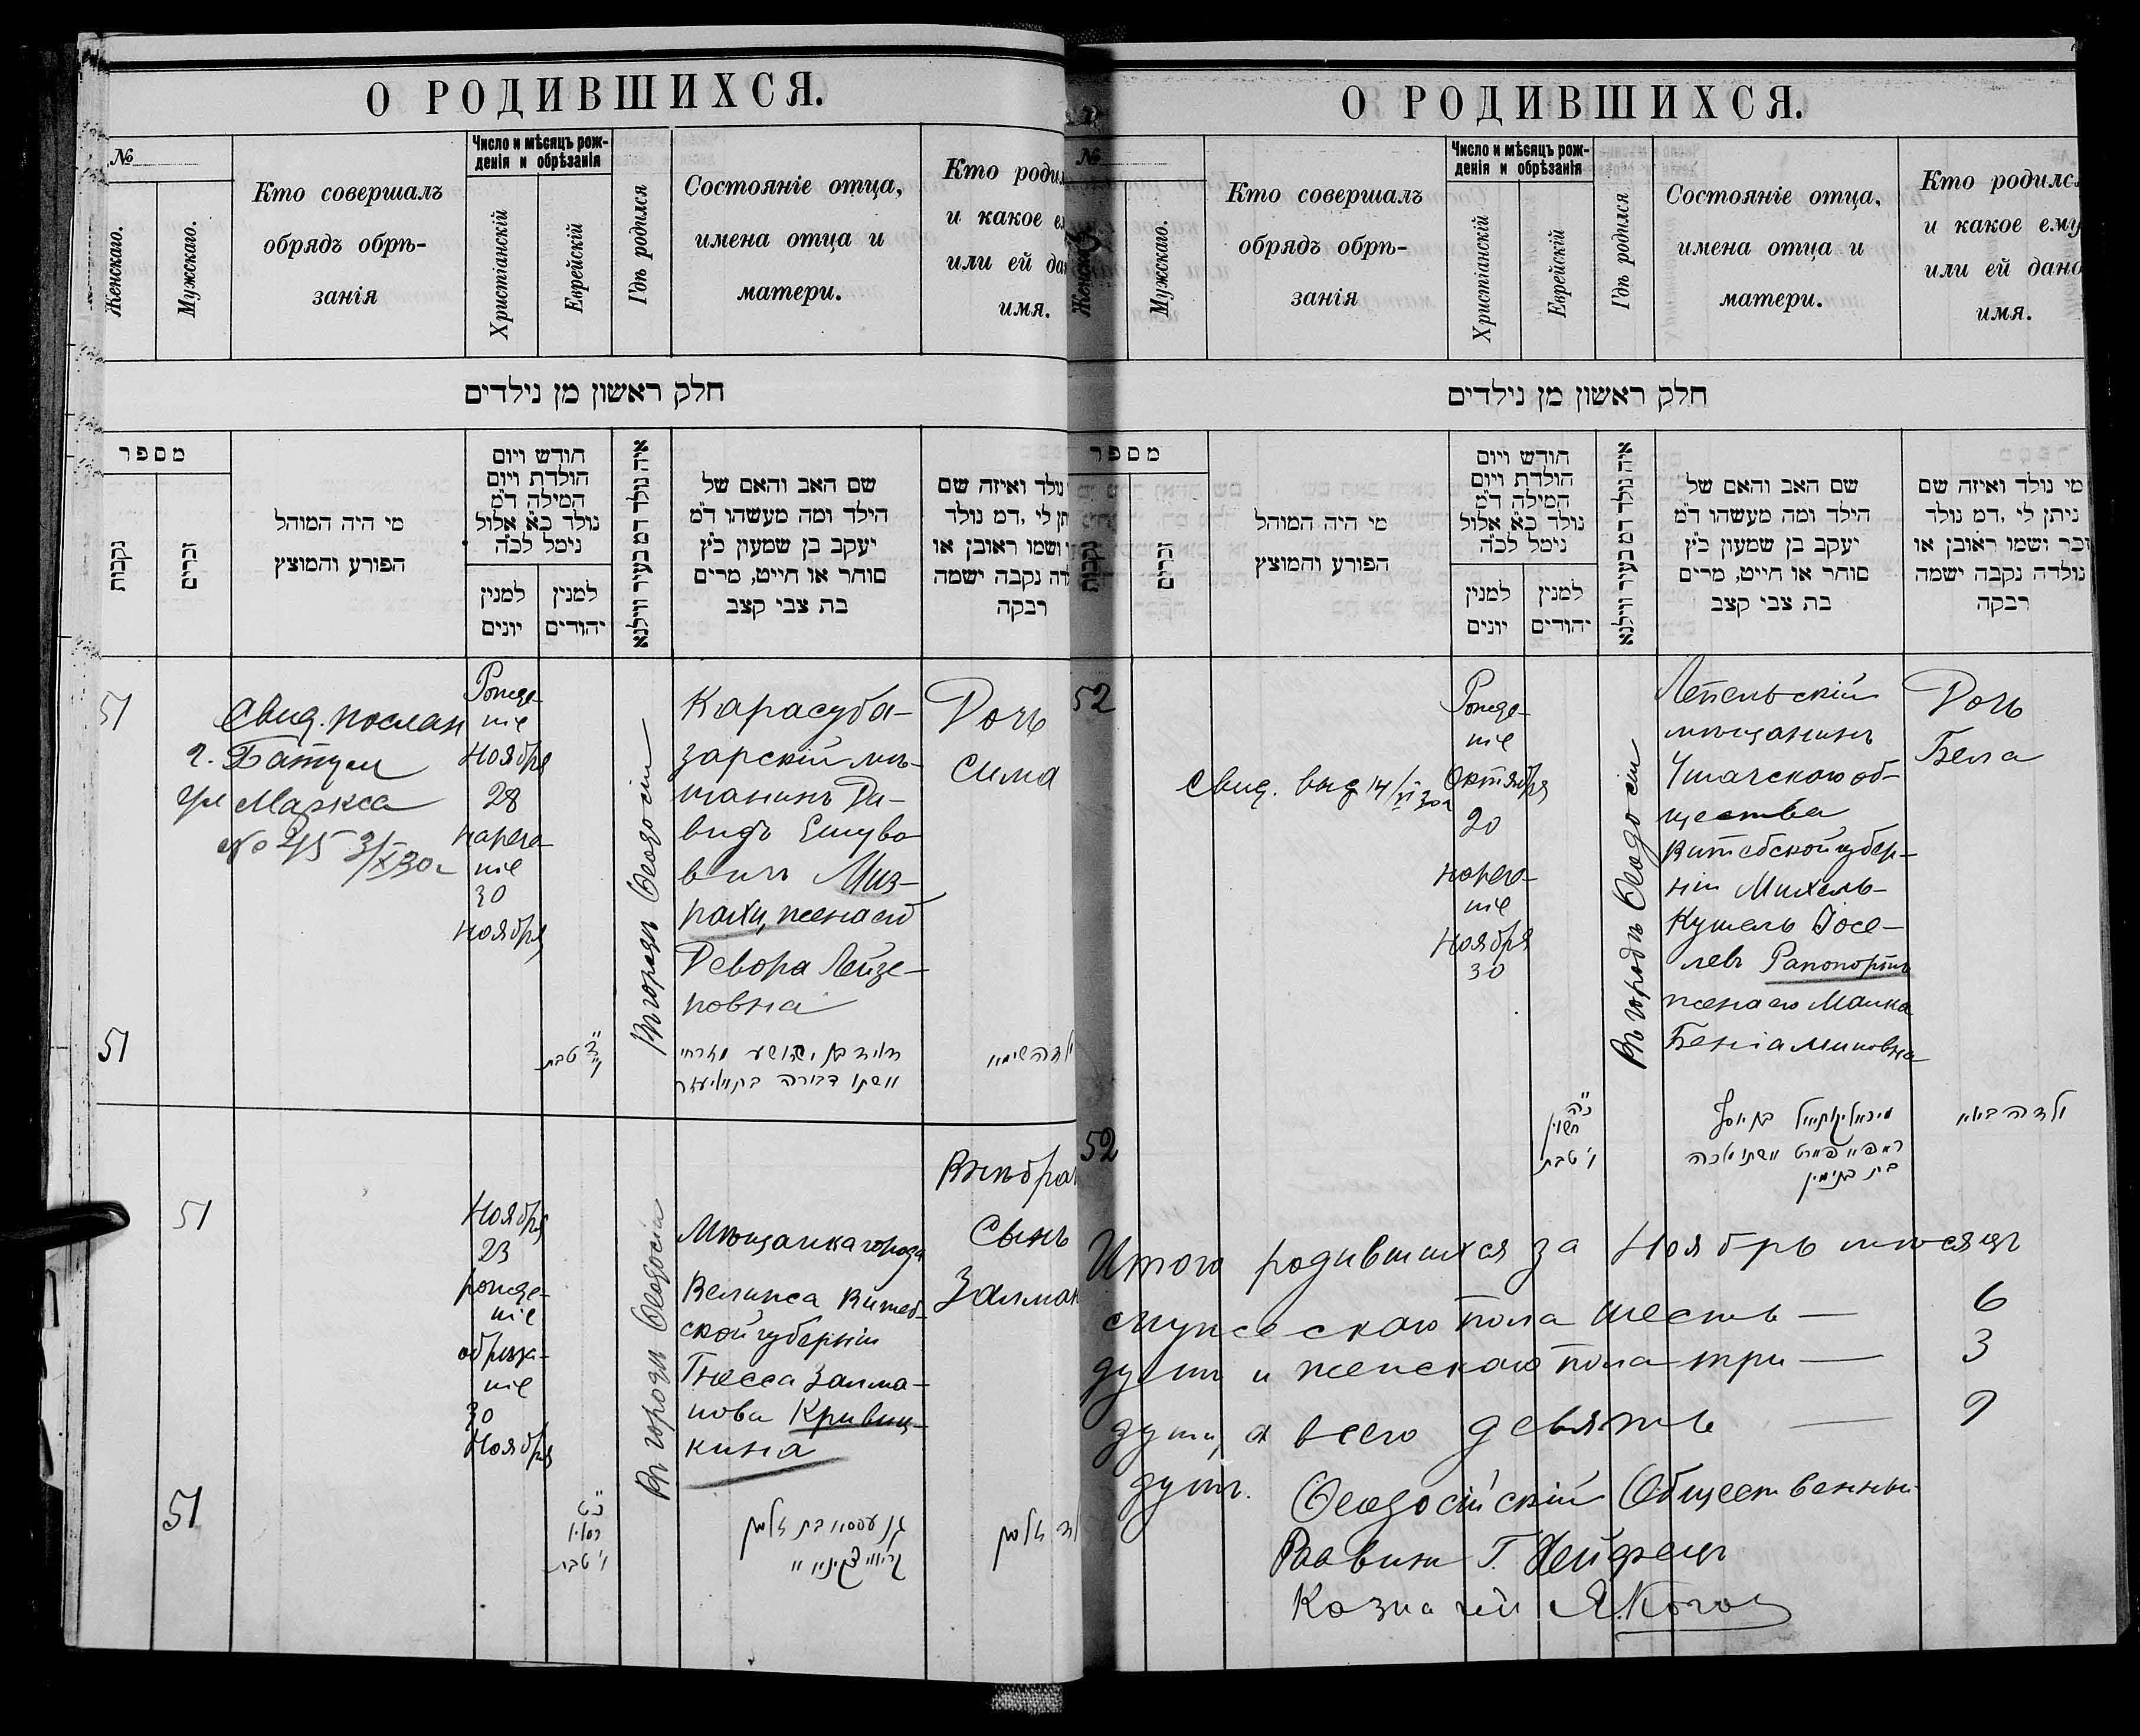 О РОДИВШИХСЯ.
№
Женскаго.
Мужскаго.
Кто совершалъ
обрядъ обрѣ-
занія
Число и мѣсяцъ рож-
денія и обрѣзанія
Христіанскій
Еврейскій
Гдѣ родился
Состояніе отца,
имена отца и
матери.
Кто родил
и какое е
или ей да
имя.
חלק ראשון מן נילדים
מספר
נקבות
זכרים
מי היה המוהל
הפורע והמוצץ
חודש ויום
הולדת ויום
המילה ד״מ
נולד כ״א אלול
נימל לכ״ה
למנין
יונים
למנין
יהודים
איה נולד דמ בעיר ווילנא
שם האב והאם של
הילד ומה מעשהו ד״מ
יעקב בן שמעון כ״ץ
סוחר או חייט, מרים
בת צבי קצב
נולד ואיזה שם
תן לי, דמ נולד
ושמו ראובן או
דה נקבה ישמה
רבקה
51
Свид. послан
г. Батум
ул Маркса
№ 245 3/X 30г
Рожде-
ніе
Ноября
28
нарече-
ніе
30
Ноября
Въ городѣ Ѳеодосіи
Карасуба-
зарскій мѣ-
щанинъ Да-
видъ Ешуво-
вичъ Миз-
рахи, жена его
Девора Лейзе-
ровна
Дочь
Сима
51
טבת
דוד בן יהושע מזרחי
ואשתו דבורה בת אליעזר
ילדה שימא
51
Ноября
23
рожде-
ніе
обрѣза-
ніе
30
Ноября
Въ городѣ Ѳеодосіи
Мѣщанка города
Велижа Витеб-
ской губерніи
Гнесса Залма-
нова Кривиц-
кина
Внѣбрач
Сынъ
Залман
51
כ״ט
כסליו
ו׳ טבת
גנעססיא בת זלמן
ילד זלמן
О РОДИВШИХСЯ.
№
Женскаго
Мужскаго.
Кто совершалъ
обрядъ обрѣ-
занія
Число и мѣсяцъ рож-
денія и обрѣзанія
Христіанскій
Еврейскій
Гдѣ родился
Состояніе отца,
имена отца и
матери.
Кто родилс
и какое ему
или ей дано
имя.
חלק ראשון מן נילדים
מספר
נקבות
זכרים
מי היה המוהל
הפורע והמוצץ
חודש ויום
הולדת ויום
המילה ד״מ
נולד כ״א אלול
נימל לכ״ה
למנין
יונים
למנין
יהודים
איה נולד דמ בעיר ווילנא
שם האב והאם של
הילד ומה מעשהו ד״מ
יעקב בן שמעון כ״ץ
סוחר או חייט, מרים
בת צבי קצב
מי נולד ואיזה שם
ניתן לי, דמ נולד
זכר ושמו ראובן או
נולדה נקבה ישמה
רבקה
52
Свид. выд 14/VI 30г
Рожде-
ніе
Октября
20
нарече-
ніе
Ноября
30
Въ городѣ Ѳеодосіи
Лепельскій
мѣщанинъ
Ушачскаго об-
щества
Витебской губер-
ніи Михель-
Кушель Іосе-
левъ Рапопортъ
жена его Малка
Беніаминовна
Дочь
Бела
52
כ״ה
חשון
ו׳ טבת
בן יוסף
ראפאפארט ואשתו מלכה
בת בנימין
ילדה בילא
Итого родившихся за Ноябрь мѣсяцъ
мужескаго пола шесть — 6
душъ и женскаго пола три — 3
душъ, а всего девять — 9
душъ.
Ѳеодосійскій Общественный
Раввинъ Г. Хейфецъ
Казначей Я. Коган